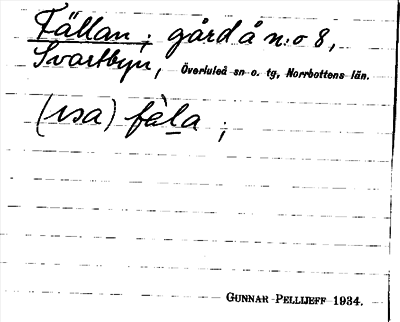 Fällan; gård å n:o 8,
Svartbyn, Överluleå sn o. tg, Norrbottens län.
(isa) fèla;
GUNNAR PELLIJEFF 1934.